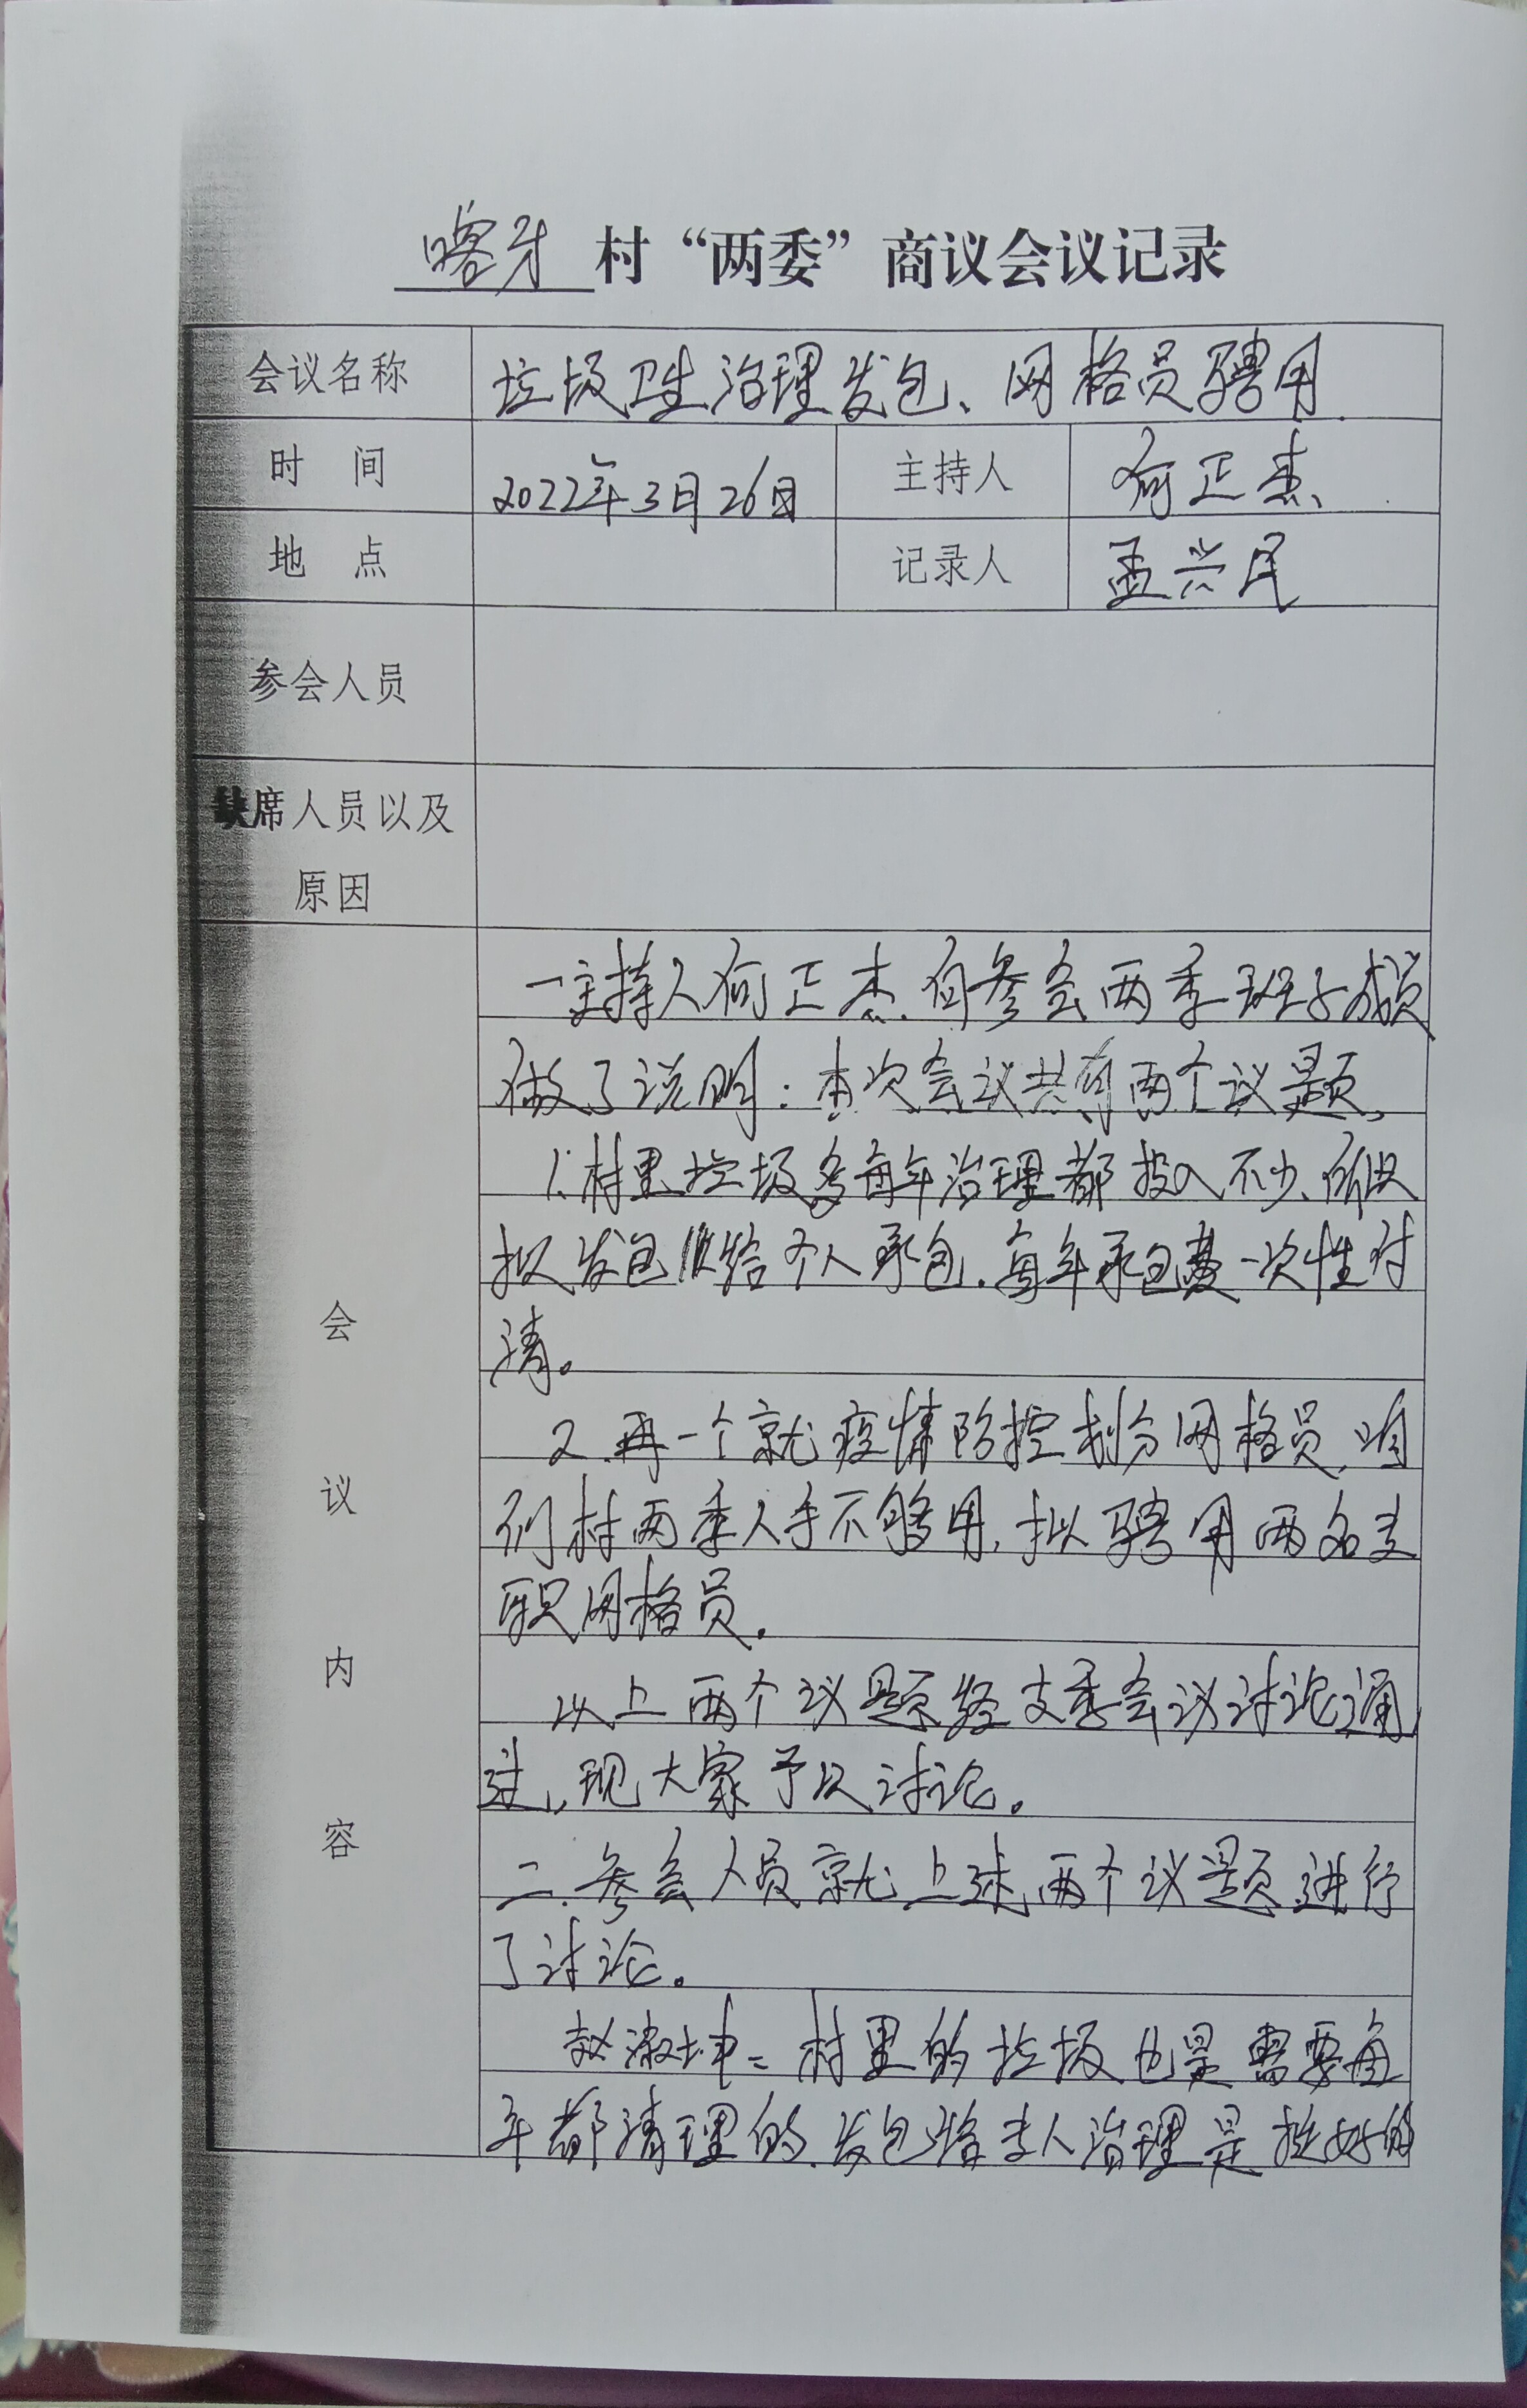 喀牙村“两委”商议会议记录
会议名称 垃圾卫生治理发包、网格员聘用.
时间 2022年3月26日 主持人 何正杰、
地点 记录人 孟兴民
参会人员
缺席人员以及
原因
会议内容
一主持人何正杰.向参会两委班子成员
做了说明:本次会议共有两个议题,
1.村里垃圾多每年治理都投入不少、所以
拟发包给个人承包.每年承包费一次性付
清。
2.再一个就疫情防控划分网格员.咱
们村两委人手不够用.拟聘用两名专
职网格员.
以上两个议题经支委会议讨论通
过,现大家予以讨论。
二.参会人员就上述两个议题进行
了讨论。
赵淑坤:村里的垃圾也是需要每
年都清理的.发包给专人治理是挺好的